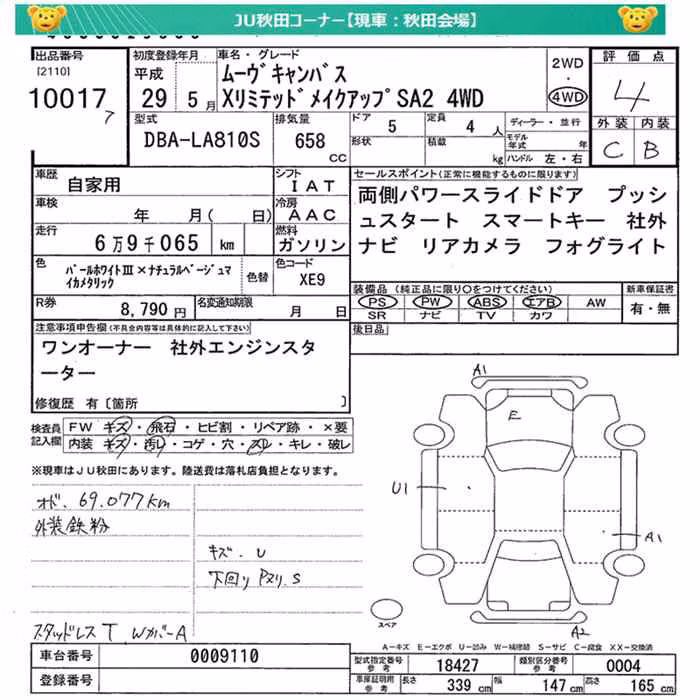 JU秋田コーナー【現車：秋田会場】
出品番号
[2110]
10017
7
初度登録年月
平成
29 5月
車名・グレード
ムーヴキャンバス
Xリミテッドメイクアップ SA2 4WD
2WD
・
4WD
評価点
4
外装 内装
C B
型式
DBA-LA810S
排気量
658
CC
ドア 5
定員 4 人
形状
積載
kg
ディーラー・並行
モデル年式 年
ハンドル 左・右
車歴
自家用
シフト
IAT
車検
年 月( 日)
冷房
AAC
走行
6万9千065 km
燃料
ガソリン
色
パールホワイトⅢ×ナチュラルベージュマイカメタリック
色替
色コード
XE9
R券
8,790 円
名変通知期限
月 日
セールスポイント(正常に機能するものに限ります)
両側パワースライドドア プッシ
ュスタート スマートキー 社外
ナビ リアカメラ フォグライト
装備品 (純正品に限り○をつけてください)
新車保証書
PS PW ABS エアB AW
有・無
SR ナビ TV カワ
後日品
注意事項申告欄(不具合内容等は具体的に記入して下さい)
ワンオーナー 社外エンジンスタ
ーター
修復歴 有〔箇所 〕
検査員
記入欄
FW キズ・飛石・ヒビ割・リペア跡・×要
内装 キズ・汚れ・コゲ・穴・スレ・キレ・破レ
※現車はJU秋田にあります。陸送費は落札店負担となります。
オド. 69.077km
外装鉄粉
キズ. U
下回り Pヌリ. S
スタッドレスT Wカバー A
A1
E
U1
A1
A2
スペア
A－キズ E－エクボ U－凹み W－補修跡 S－サビ C－腐食 XX－交換済
車台番号
0009110
登録番号
型式指定番号
参考
18427
類別区分番号
参考
0004
車庫証明用
参考
長さ 339 cm
幅 147 cm
高さ 165 cm